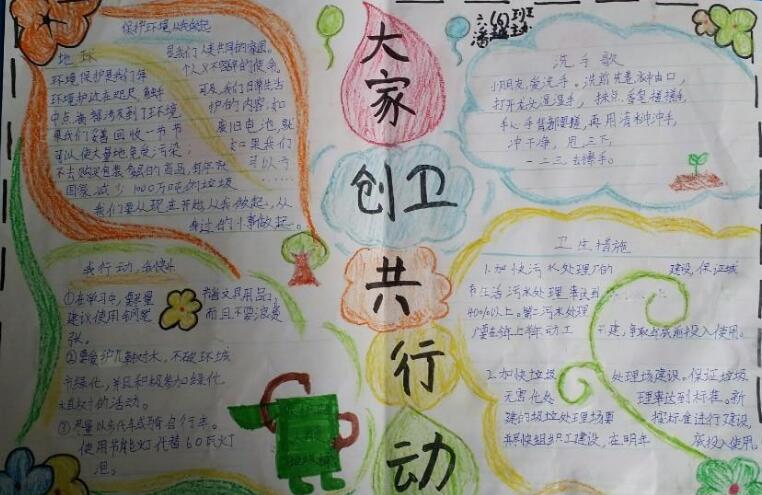 大家
创卫
共
行
动
六(6)班
保护环境从我做起
地球
是我们人类共同的家园。
环境保护是我们每
个义不容辞的使命。
环境护这在咫尺
可及,我们日常生活
中点滴都涉及到了环境
护的内容,如
果我们
回收一节节
废旧电池,就
可以使大量地免受污染;
如果我们
不去购买包装
的商品,每年就
可以为
国家减少1000万吨的垃圾
……
我们要从现在开始从我做起,从
身边的小事做起。
洗手歌
小朋友,爱洗手。洗前先卷袖口,
打开龙头湿湿手,抹点香皂搓搓手,
手心手背都要搓,再用清水冲冲手,
冲干净,甩三下,
一二三,去擦手。
我行动,我快乐
①在学习中,要尽量
节省文具用品,
建议使用钢笔
而且不要浪费
张。
②要爱护几树木,不破环城
市绿化,并且积极参加绿化
植树的活动。
③尽量以步代车或骑自行车。
使用节能灯代替60瓦灯
泡。
卫生措施
1.加快污水处理厂的
建设,保证城
市生活污水处理率达到
40%以上。第二污水处理
厂要在年上科动工
建,争取年底前投入使用。
2.加快垃圾
处理场建设。保证垃圾
无害化处
理率达到标准。新
建的垃圾处理场要
按标准进行建设,
尽快组织工建设,在明年
底投入使用。